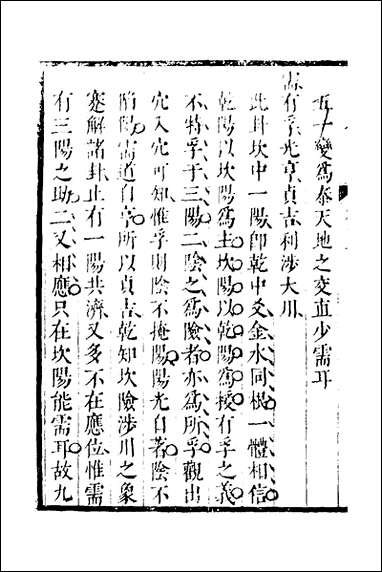 五十變爲泰天地之交直少需耳
需有孚光亨貞吉利涉大川
此卦坎中一陽卽乾中爻金水同根一體相信
乾陽以坎陽爲主坎陽以乾陽爲援有孚之義
不特孚于三陽二陰之爲險者亦爲所孚觀出
穴入穴可知惟孚則陰不掩陽陽光自著陰不
陷陽需道自亨所以貞吉乾知坎險涉川之象
蹇解諸卦止有一陽共濟又多不在應位惟需
有三陽之助二又相應只在坎陽能需耳故九